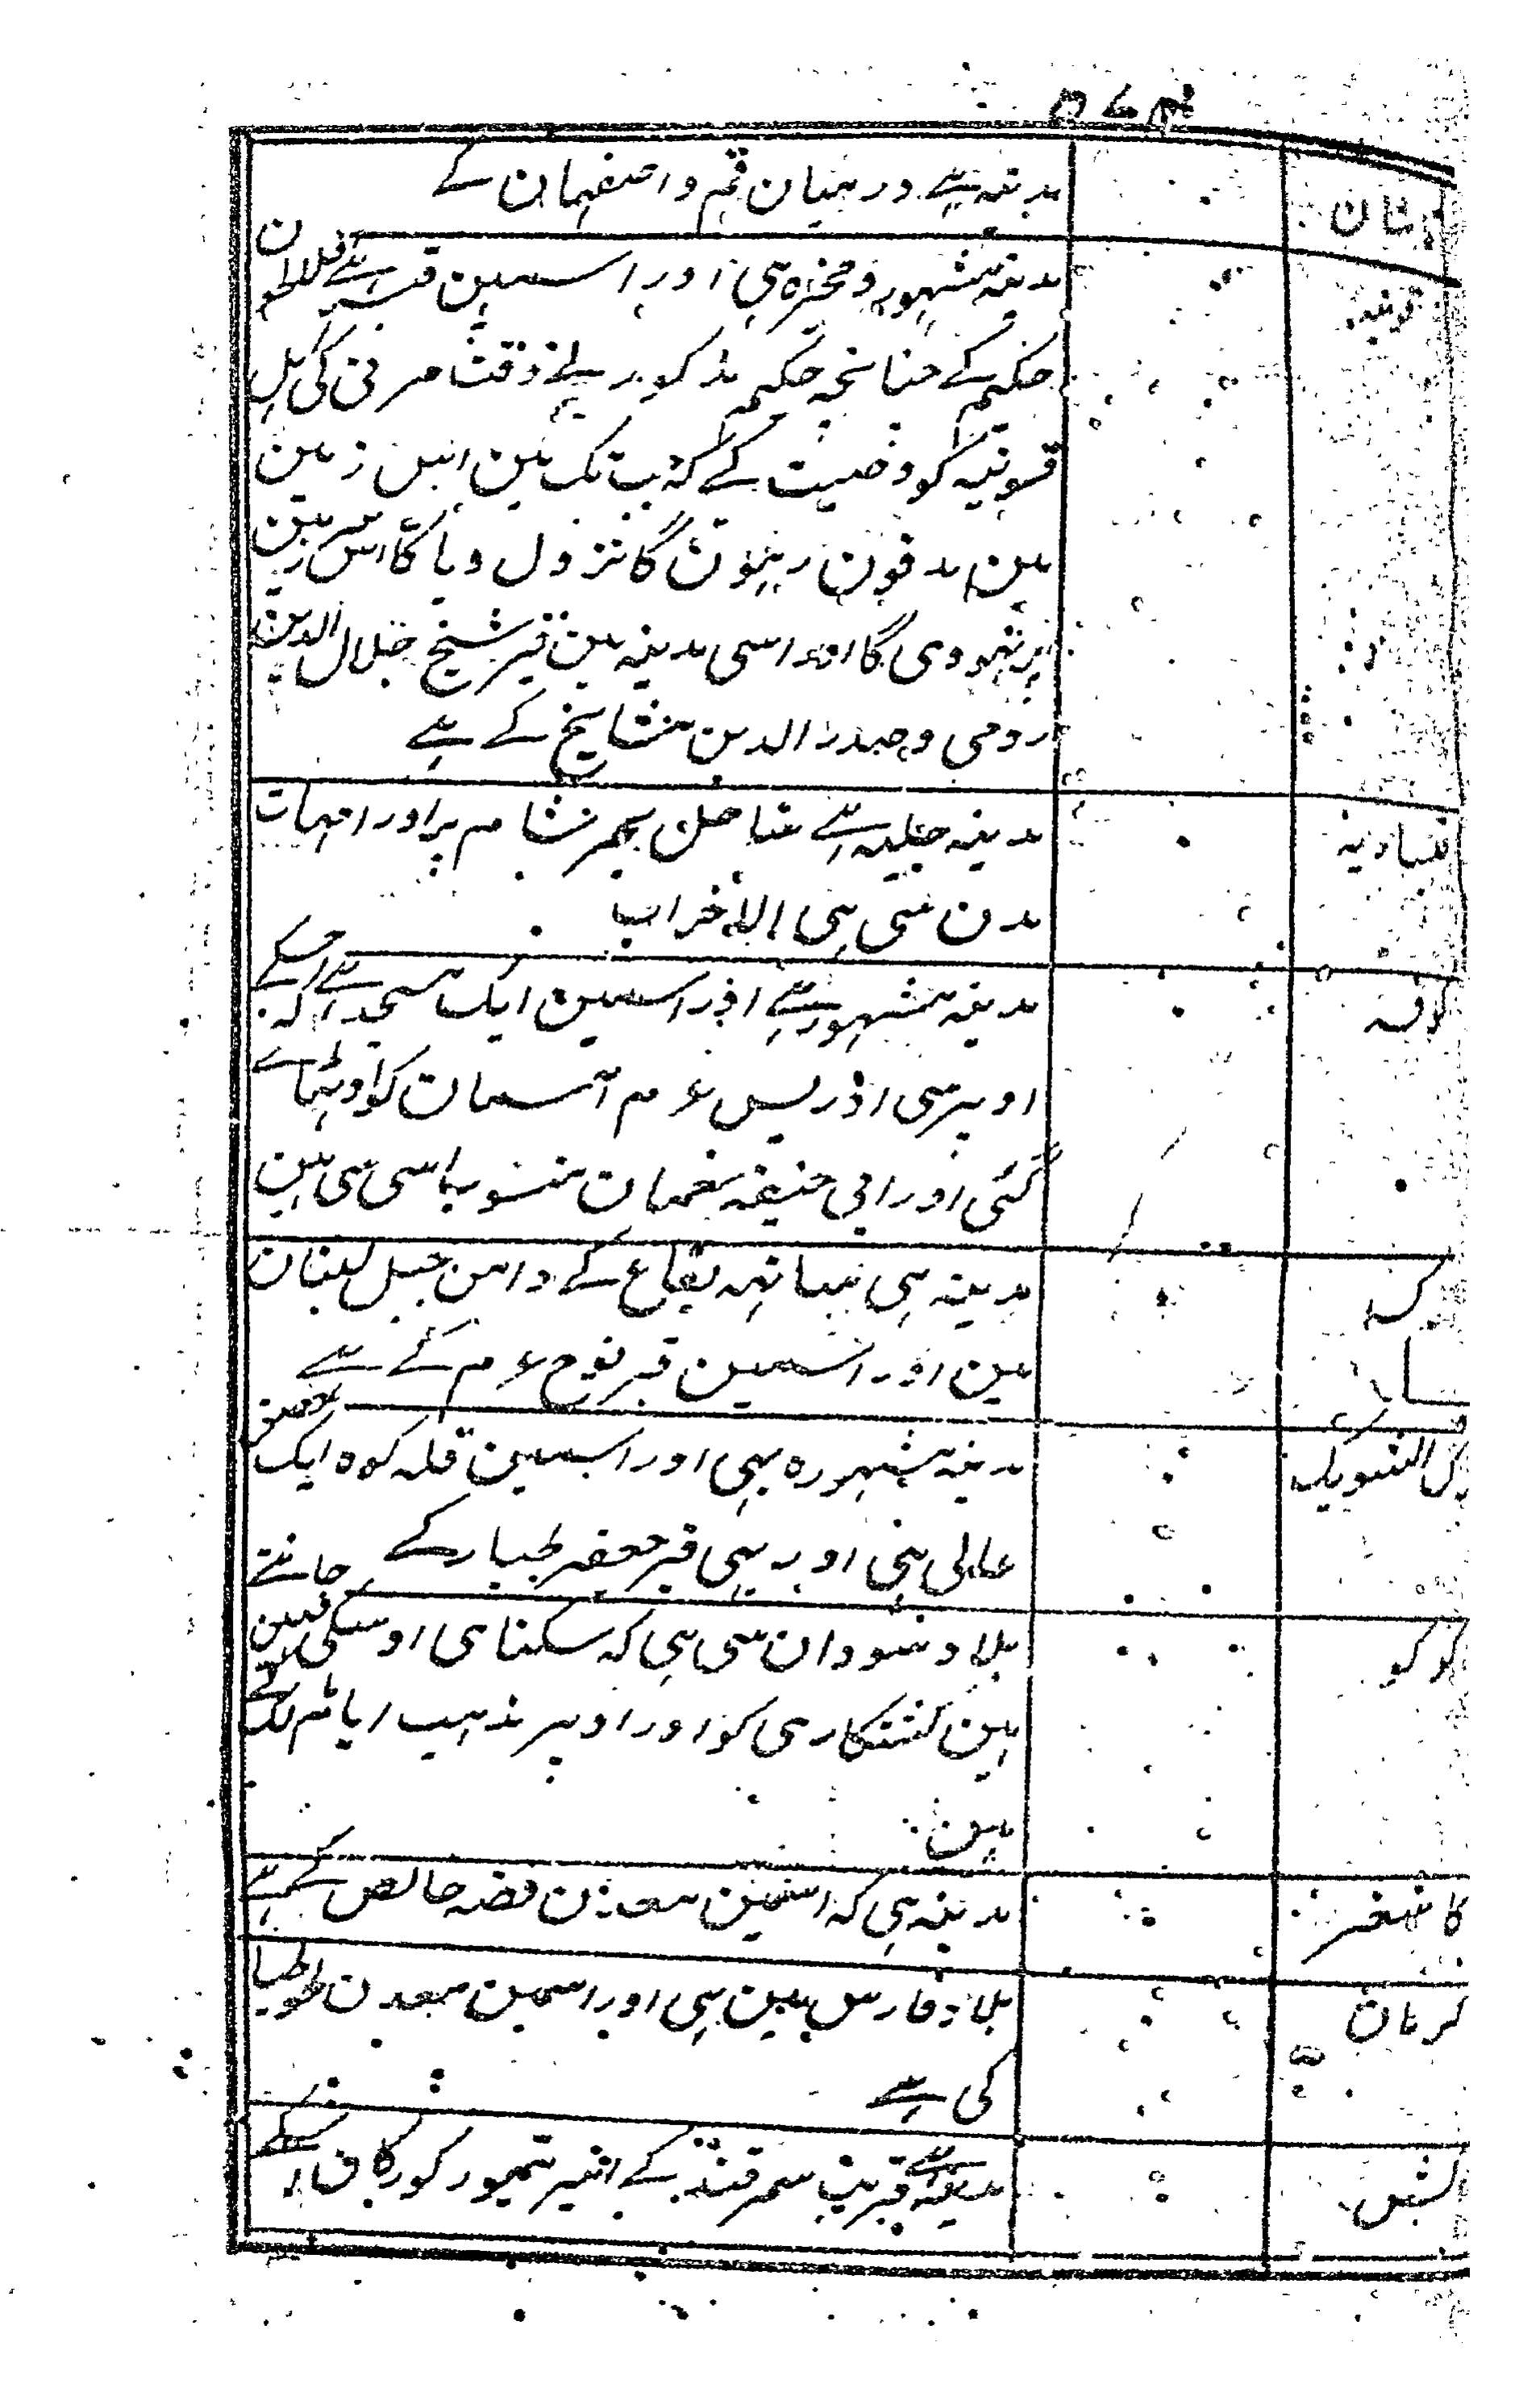 کاشان
مدینہ ہے درمیان قم و اصفہان کے
قونیہ
مدینہ مشہور و ہی اور اسمین قبر ہے افلاطون
حکیم کے چنانچہ حکیم مذکور نے وقت مرنی کی اہل
قونیہ کو وصیت کے کہ جب تک مین اس زمین
مین مدفون رہون گا نزول وبا کا اس سرزمین
پر نہووی گا اور اسی مدینہ مین قبر شیخ جلال الدین
رومی و صدر الدین مشایخ کے ہے
قیساریہ
مدینہ جلیلہ ہے ساحل بحر شام پر اور امہات
مدن سی ہی الا خراب
کوفہ
مدینہ مشہور ہے اور اسمین ایک مسجد ہے کہ جسکے
اوپر سی ادریس ع م آسمان کو اوٹہائے
گئی اور ابی حنیفہ نعمان منسوب اسی سی ہین
مدینہ ہی بقاع کے دامن جبل لبنان
مین اور اسمین قبر نوح ع م کے ہے
کرک الشوبک
مدینہ مشہورہ ہی اور اسمین قلہ کوہ ایک
عالی ہی اور ہی قبر جعفر طیار کے
کوکو
بلاد سودان سی ہی کہ سکنا ہی اوسکی نہین جانتے
ہین کشتکاری کو اور اوپر مذہب
ہین
کاشغر
مدینہ ہی کہ اسمین معدن فضہ خالص کے ہے
کرمان
بلاد فارس مین ہی اور اسمین معدن طوطیا
کی ہے
کش
مدینہ ہے قریب سمرقند کے امیر تیمور کورکان